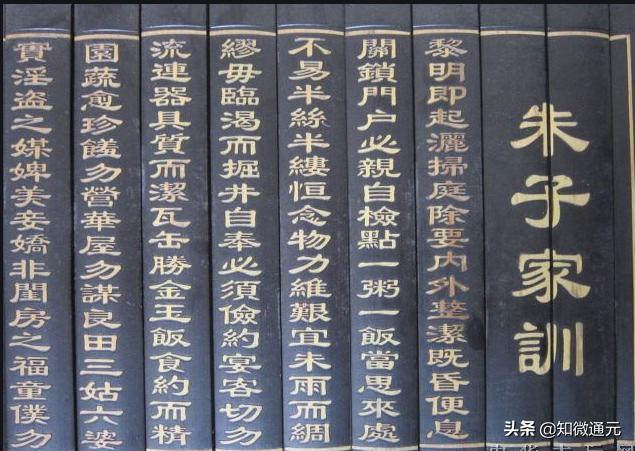 朱子家訓
黎明即起灑掃庭除要內外整潔既昏便息
關鎖門户必親自檢點一粥一飯當思來處
不易半絲半縷恒念物力維艱宜未雨而綢
繆毋臨渴而掘井自奉必須儉約宴客切勿
流連器具質而潔瓦缶勝金玉飯食約而精
園蔬愈珍饈勿營華屋勿謀良田三姑六婆
實淫盜之媒婢美妾嬌非閨房之福童僕勿
头条 @知微通元